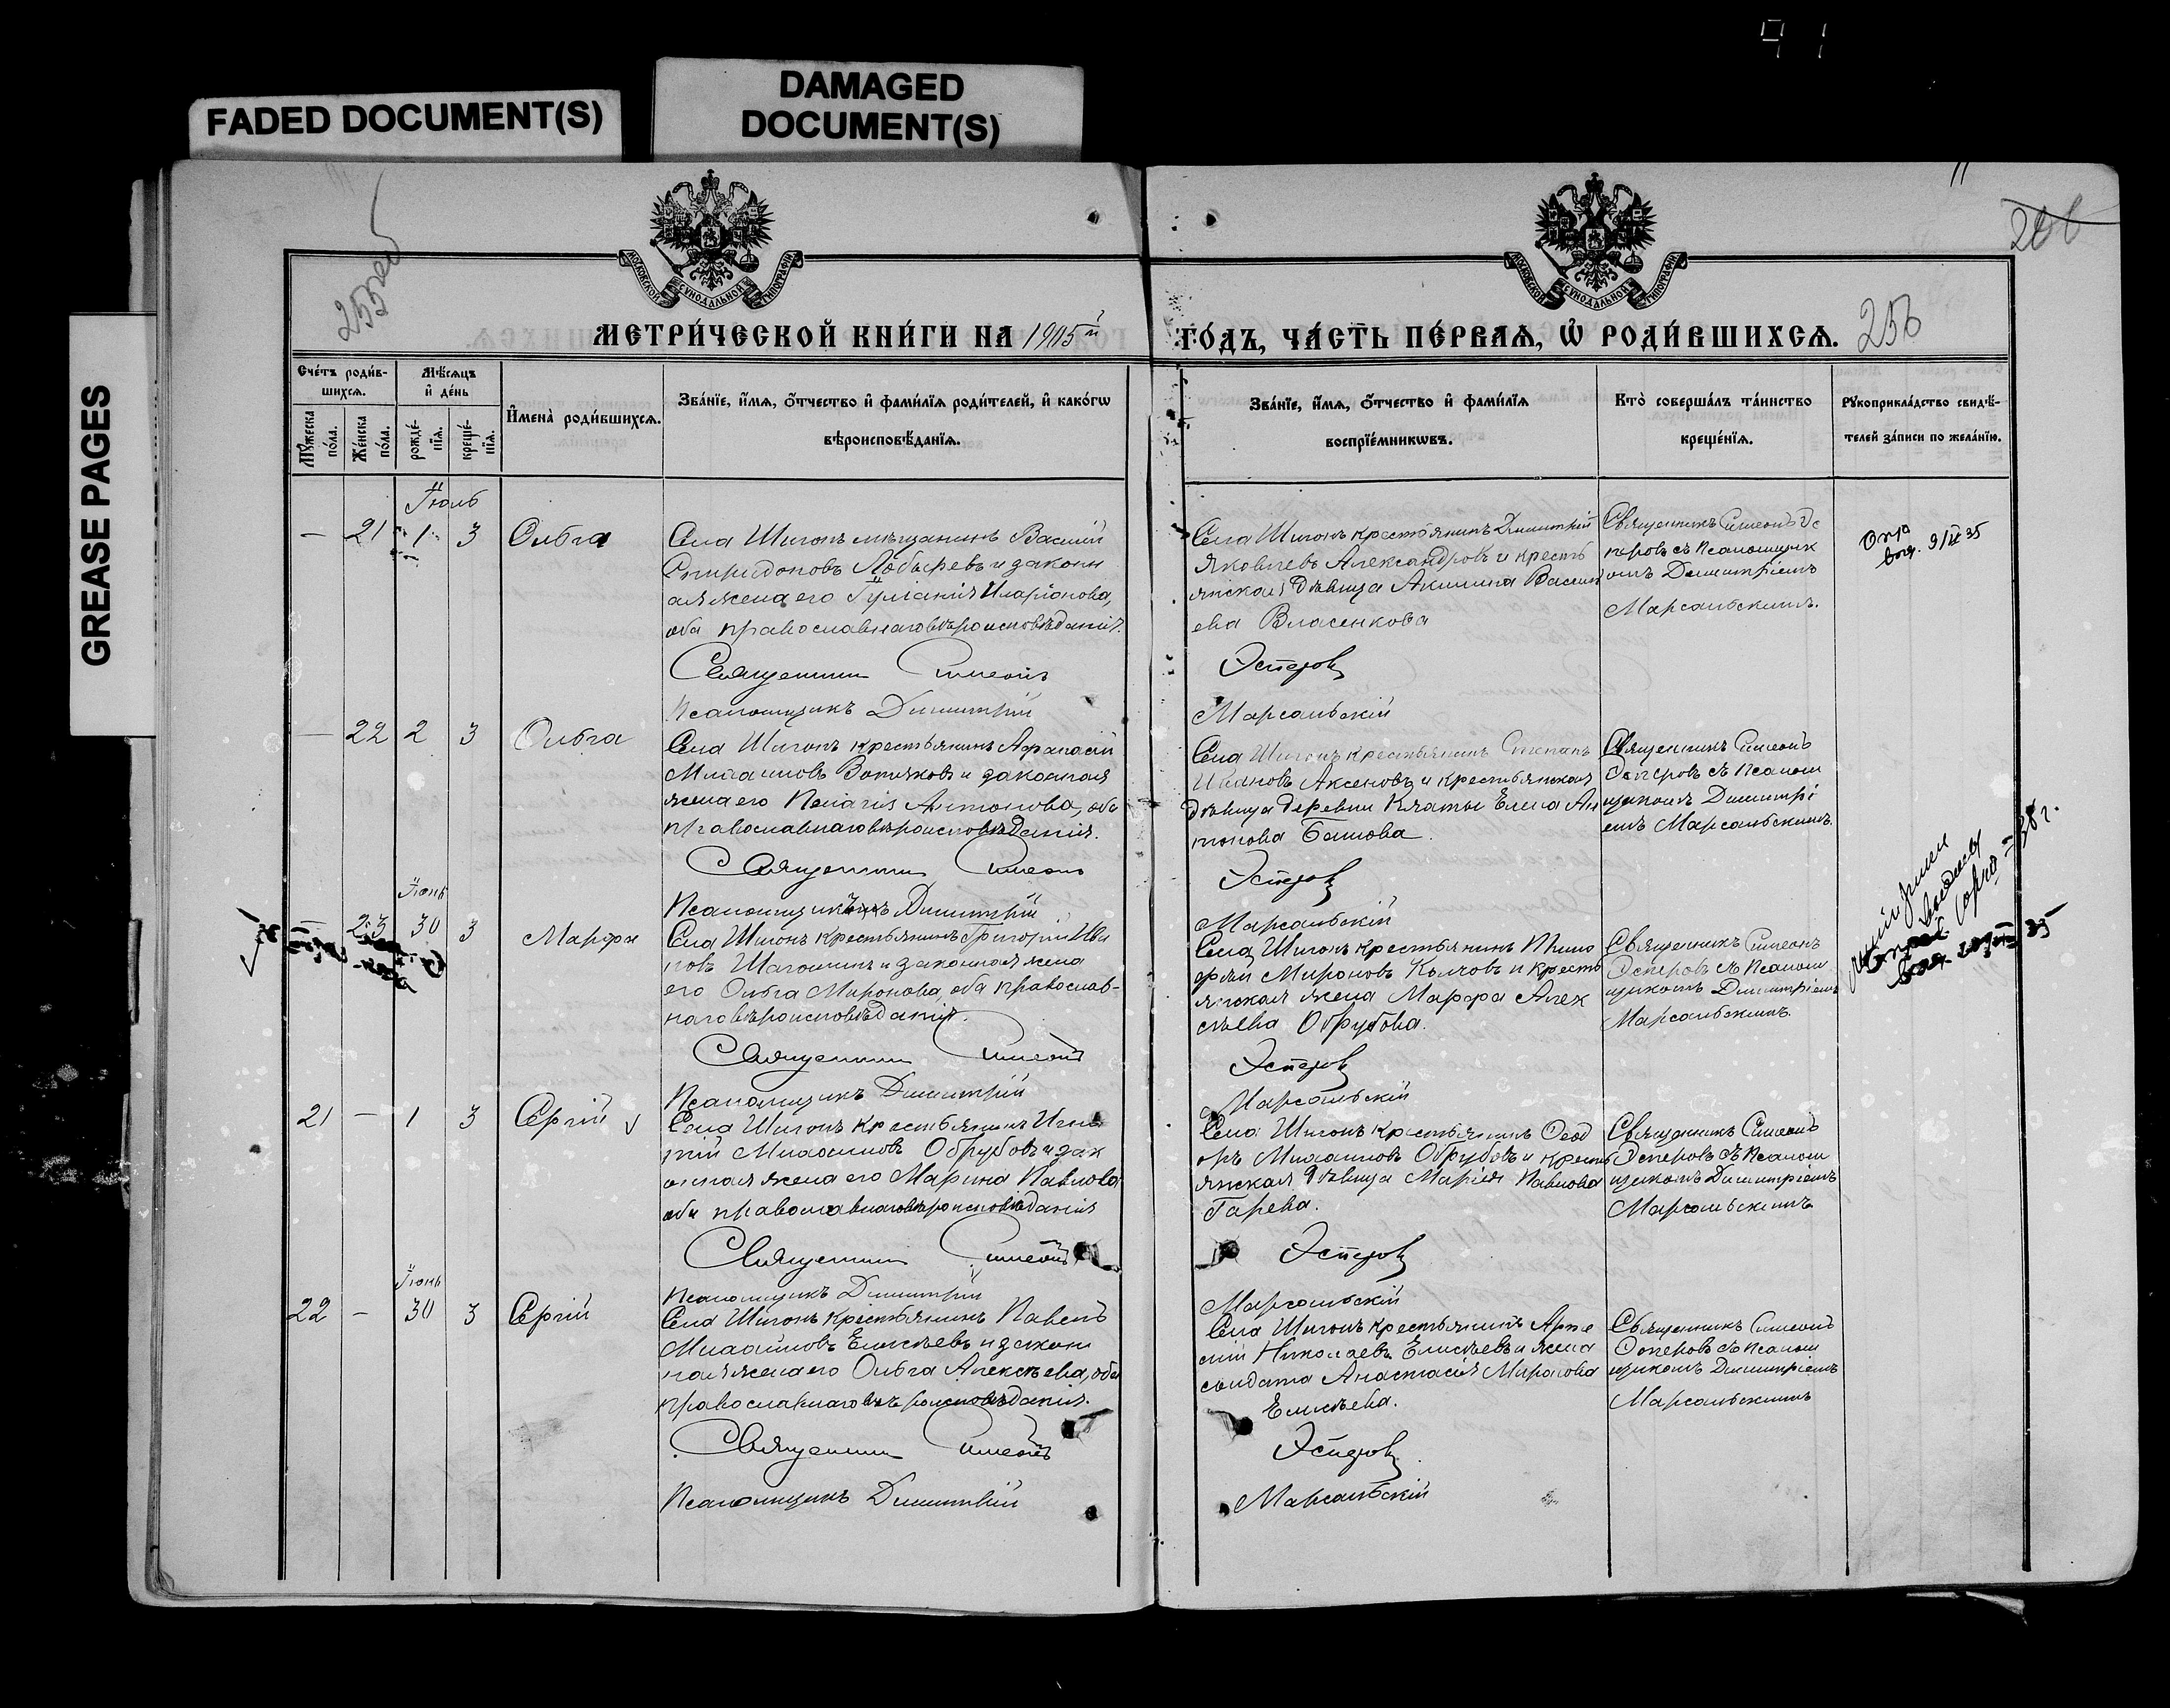 91
FADED DOCUMENT(S)
DAMAGED
DOCUMENT(S)
GREASE PAGES
МОСКОВСКОЙ СѴНОДАЛЬНОЙ ТИПОГРАФІИ
МОСКОВСКОЙ СѴНОДАЛЬНОЙ ТИПОГРАФІИ
255
256
МЕТРИ́ЧЕСКОЙ КНИ́ГИ НА 1905й
ГО́ДЪ, ЧА́СТЬ ПЕ́РВАѦ, Ѡ҆ РОДИ́ВШИХСѦ.
Сче́тъ роди́в-
шихсѧ.
Мѣ́сѧцъ
и҆ де́нь
Мꙋ́жеска
по́ла.
Же́нска
по́ла.
рожде́-
нїѧ.
креще́-
нїѧ.
И҆мена̀ роди́вшихсѧ.
Зва́нїе, и҆́мѧ, ѻ҆́тчество и҆ фамі́лїѧ роди́телей, и҆ како́гѡ
вѣроисповѣ́данїѧ.
Зва́нїе, и҆́мѧ, ѻ҆́тчество и҆ фамі́лїѧ
воспрїе́мникѡвъ.
Кто̀ соверша́лъ та́инство
креще́нїѧ.
Рꙋкоприкла́дство свидѣ́-
телей за́писи по жела́нїю.
Іюль
— 21 1 3 Ольга
Села Шигонъ мѣщанинъ Василій
Спиридоновъ Лобыревъ и законн
ая жена его Іуліанія Иларіонова,
оба православнаго вѣроисповѣданія.
Священникъ Симеонъ
Псаломщикъ Димитрій
Села Шигонъ крестьянинъ Димитрій
Яковлевъ Александровъ и кресть
янская дѣвица Акилина Васил
ева Власенкова
Эсперовъ
Марсальскій
Священникъ Симеонъ Эс
перовъ съ псаломщик
омъ Димитріемъ
Марсальскимъ.
— 22 2 3 Ольга
Села Шигонъ крестьянинъ Афанасій
Михаиловъ и законная
жена его Пелагія Антонова, оба
православнаго вѣроисповѣданія.
Священникъ Симеонъ
Псаломщикъ Димитрій
Села Шигонъ крестьянинъ Степанъ
Ивановъ Аксеновъ и крестьянская
дѣвица деревни Елена Ан
тонова Башова.
Эсперовъ
Марсальскій
Священникъ Симеонъ
Эсперовъ съ псалом
щикомъ Димитрі
емъ Марсальскимъ.
Іюнь
— 23 30 3 Марфа
Села Шигонъ крестьянинъ Григорій Ива
новъ Шагошинъ и законная жена
его Ольга Миронова, оба православ-
наго вѣроисповѣданія.
Священникъ Симеонъ
Псаломщикъ Димитрій
Села Шигонъ крестьянинъ Тимо
фей Мироновъ Колчовъ и кресть
янская жена Марфа Алек
сѣева Обрубова.
Эсперовъ
Марсальскій
Священникъ Симеонъ
Эсперовъ съ псалом
щикомъ Димитріемъ
Марсальскимъ.
21 — 1 3 Сергій
Села Шигонъ крестьянинъ Игна
тій Михаиловъ Обрубовъ и зак
онная жена его Марина Павлова
оба православнаго вѣроисповѣданія
Священникъ Симеонъ
Псаломщикъ Димитрій
Села Шигонъ крестьянинъ Ѳеод
оръ Михаиловъ Обрубовъ и кресть
янская дѣвица Марія Павлова
Гарева.
Эсперовъ
Марсальскій
Священникъ Симеонъ
Эсперовъ съ псалом
щикомъ Димитріемъ
Марсальскимъ
Іюнь
22 — 30 3 Сергій
Села Шигонъ крестьянинъ Павелъ
Михайловъ Елисѣевъ и закон
ная жена его Ольга Алексѣева, оба
православнаго вѣроисповѣданія.
Священникъ Симеонъ
Псаломщикъ Димитрій
Села Шигонъ крестьянинъ Арсе
ній Николаевъ Елисѣевъ и жена
солдата Анастасія Миронова
Елисѣева.
Эсперовъ
Марсальскій
Священникъ Симеонъ
Эсперовъ съ псалом
щикомъ Димитріемъ
Марсальскимъ